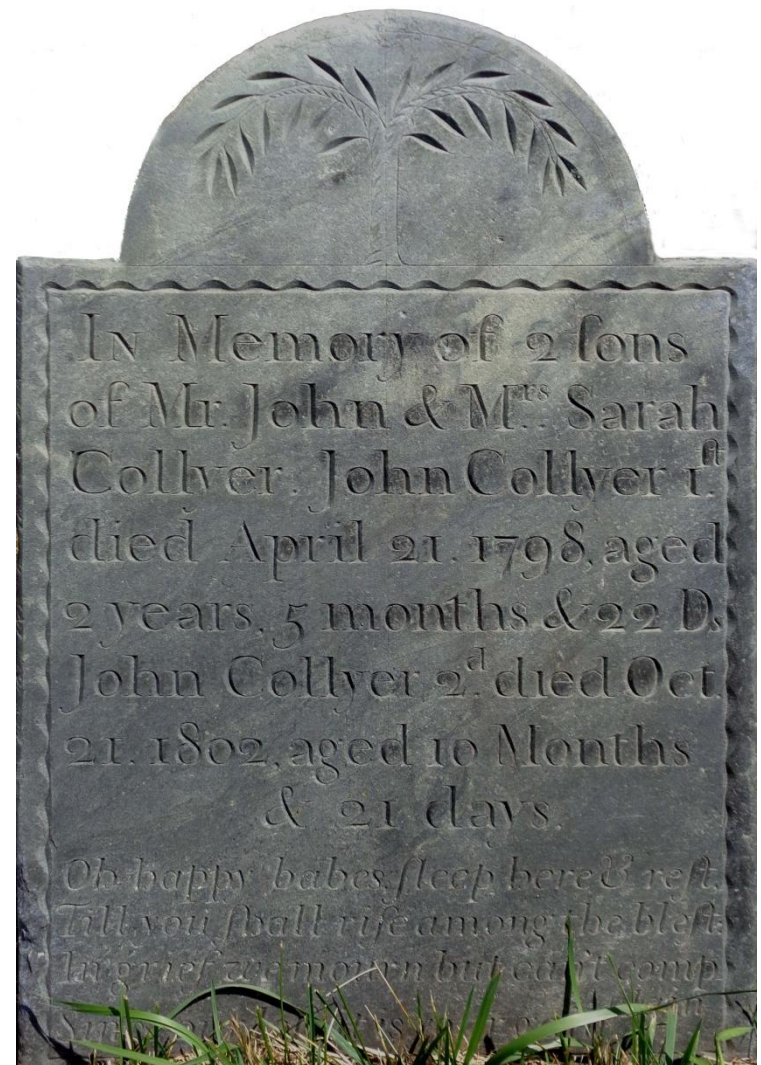 In Memory of 2 ſons
of Mr. John & Mrs. Sarah
Collyer. John Collyer 1.ſt
died April 21. 1798, aged
2 years, 5 months & 22 Ds
John Collyer 2.d died Oct.
21. 1802, aged 10 Months
& 21 days.
Oh happy babes, ſleep here & reſt,
Till you ſhall riſe among the bleſt.
In grief we mourn but can't comp